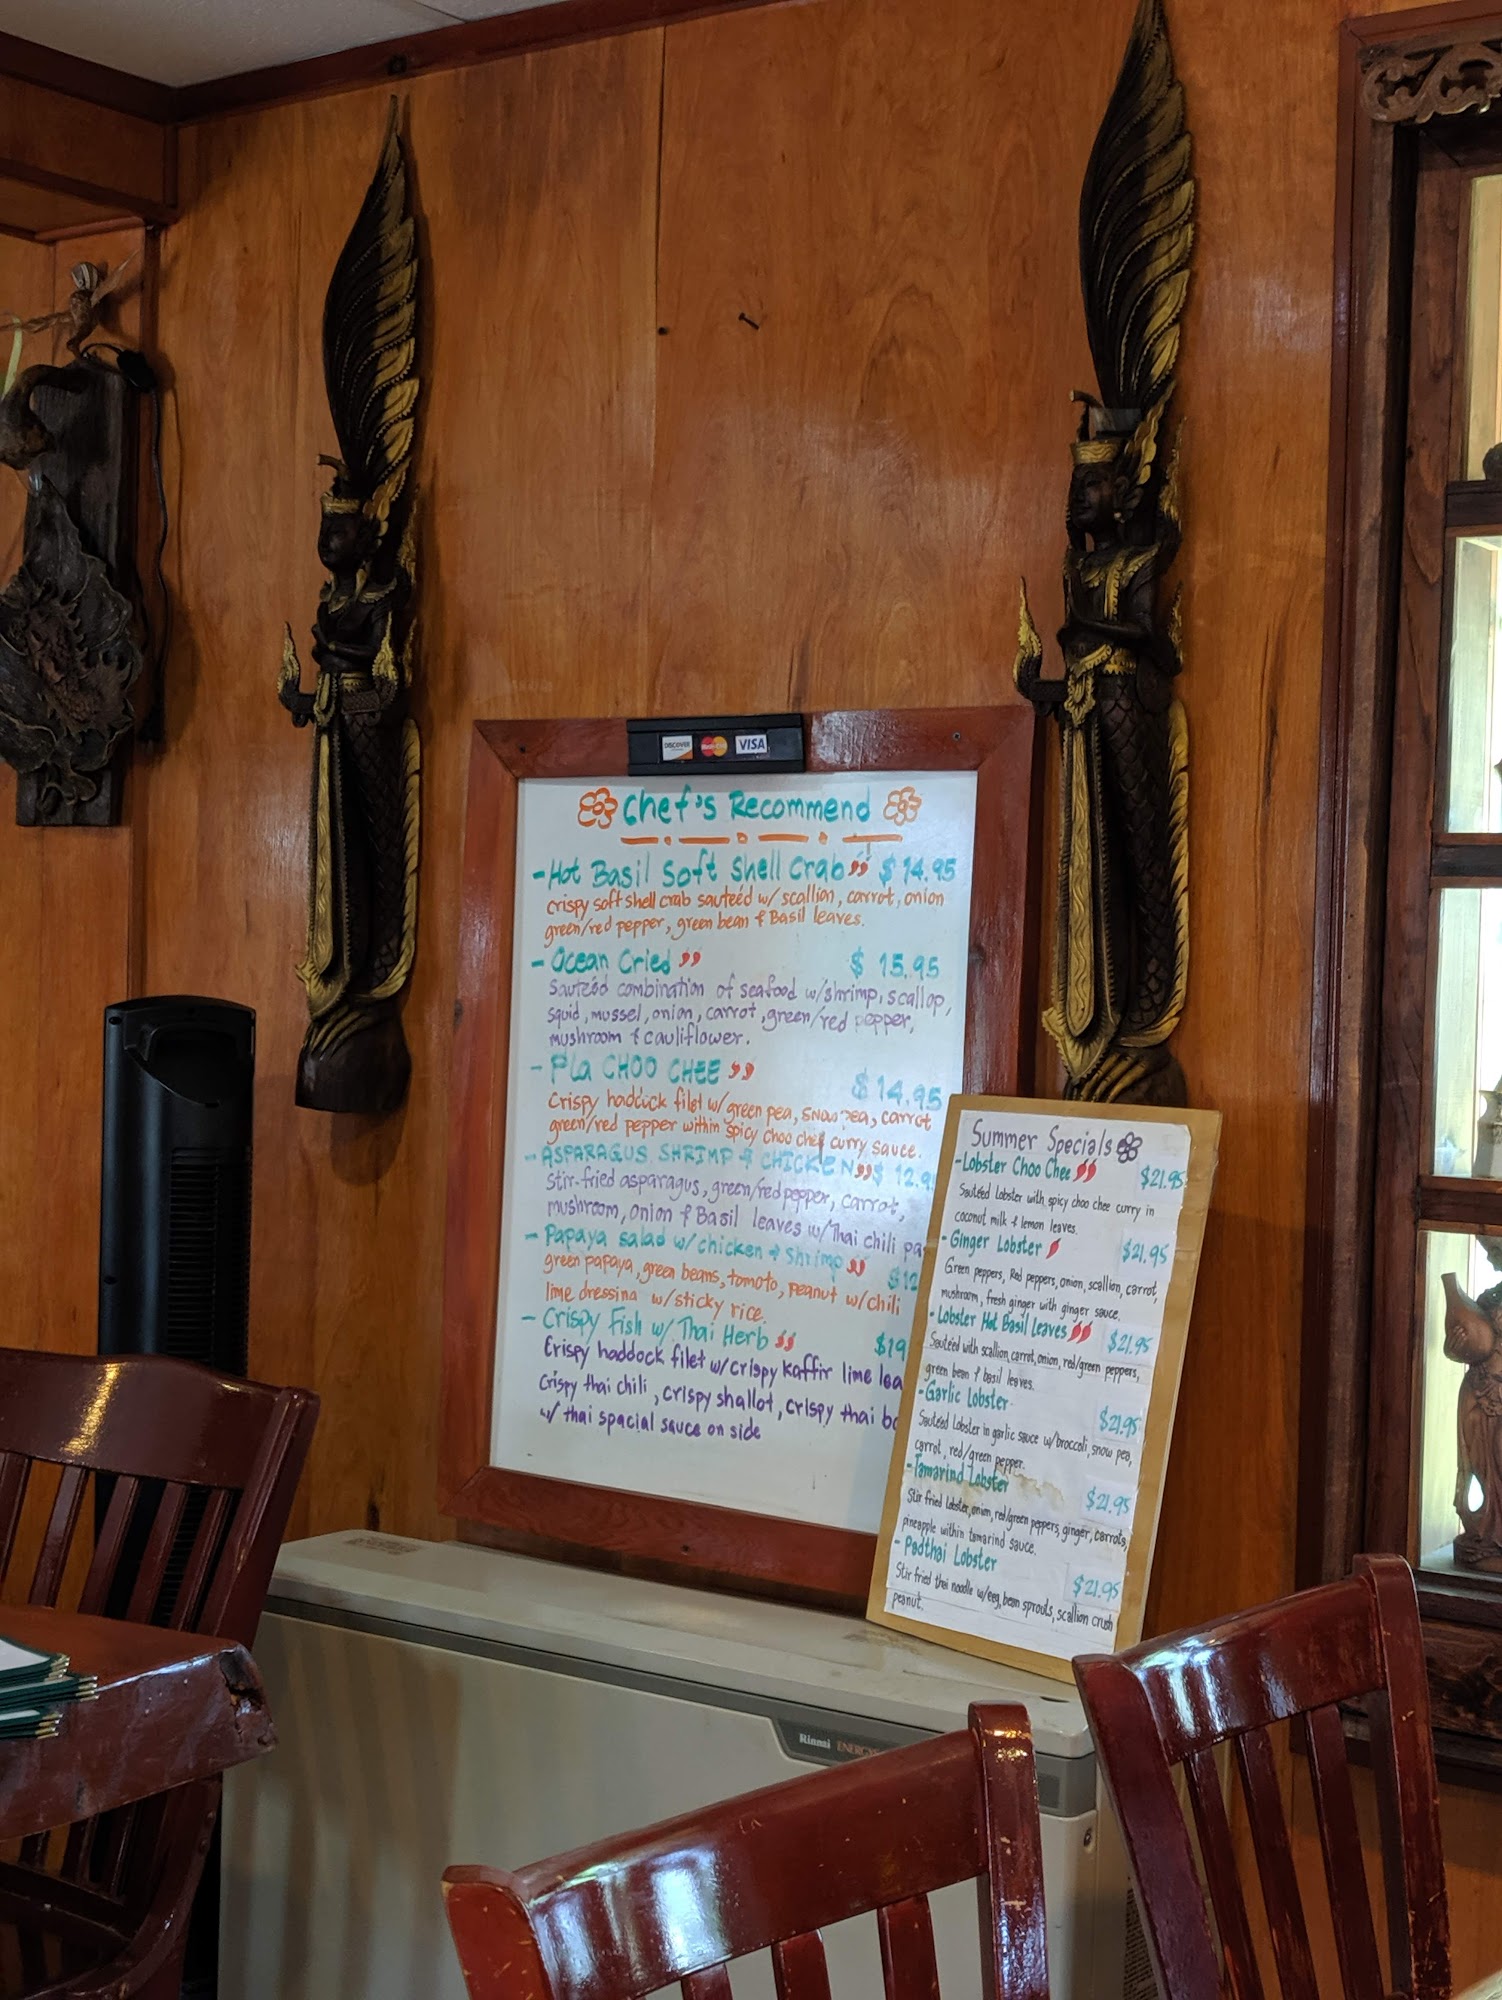 DISCOVER
VISA
Chef's Recommend
- Hot Basil Soft Shell Crab $14.95
crispy soft shell crab sauteéd w/ scallion, carrot, onion
green/red pepper, green bean & Basil leaves.
- Ocean Cried $ 15.95
Sauteéd combination of seafood w/shrimp, scallop,
squid, mussel, onion, carrot, green/red pepper,
mushroom & cauliflower.
- Pla CHOO CHEE $14.95
Crispy haddock filet w/ green pea, snow pea, carrot
green/red pepper within spicy choo chee curry sauce.
- ASPARAGUS SHRIMP & CHICKEN $ 12.9
Stir-fried asparagus, green/red pepper, carrot,
mushroom, onion & Basil leaves w/Thai chili pa
- Papaya salad w/ chicken & Shrimp $12
green papaya, green beans, tomoto, peanut w/chili
lime dressing w/sticky rice.
- Crispy Fish w/ Thai Herb $19
Crispy haddock filet w/ crispy kaffir lime lea
crispy thai chili, crispy shallot, crispy thai ba
w/ thai spacial sauce on side
Summer Specials
- Lobster Choo Chee $21.95
Sautéed lobster with spicy choo chee curry in
coconut milk & lemon leaves.
- Ginger Lobster $21.95
Green peppers, Red peppers, onion, scallion, carrot,
mushroom, fresh ginger with ginger sauce.
- Lobster Hot Basil Leaves $21.95
Sautéed with scallion, carrot, onion, red/green peppers,
green bean & basil leaves.
- Garlic Lobster $21.95
Sautéed Lobster in garlic sauce w/broccoli, snow pea,
carrot, red/green pepper.
- Tamarind Lobster $21.95
Stir fried lobster, onion, red/green peppers, ginger, carrots,
pineapple within tamarind sauce.
- Padthai Lobster $21.95
Stir fried thai noodle w/egg, bean sprouts, scallion crush
peanut.
Rinnai